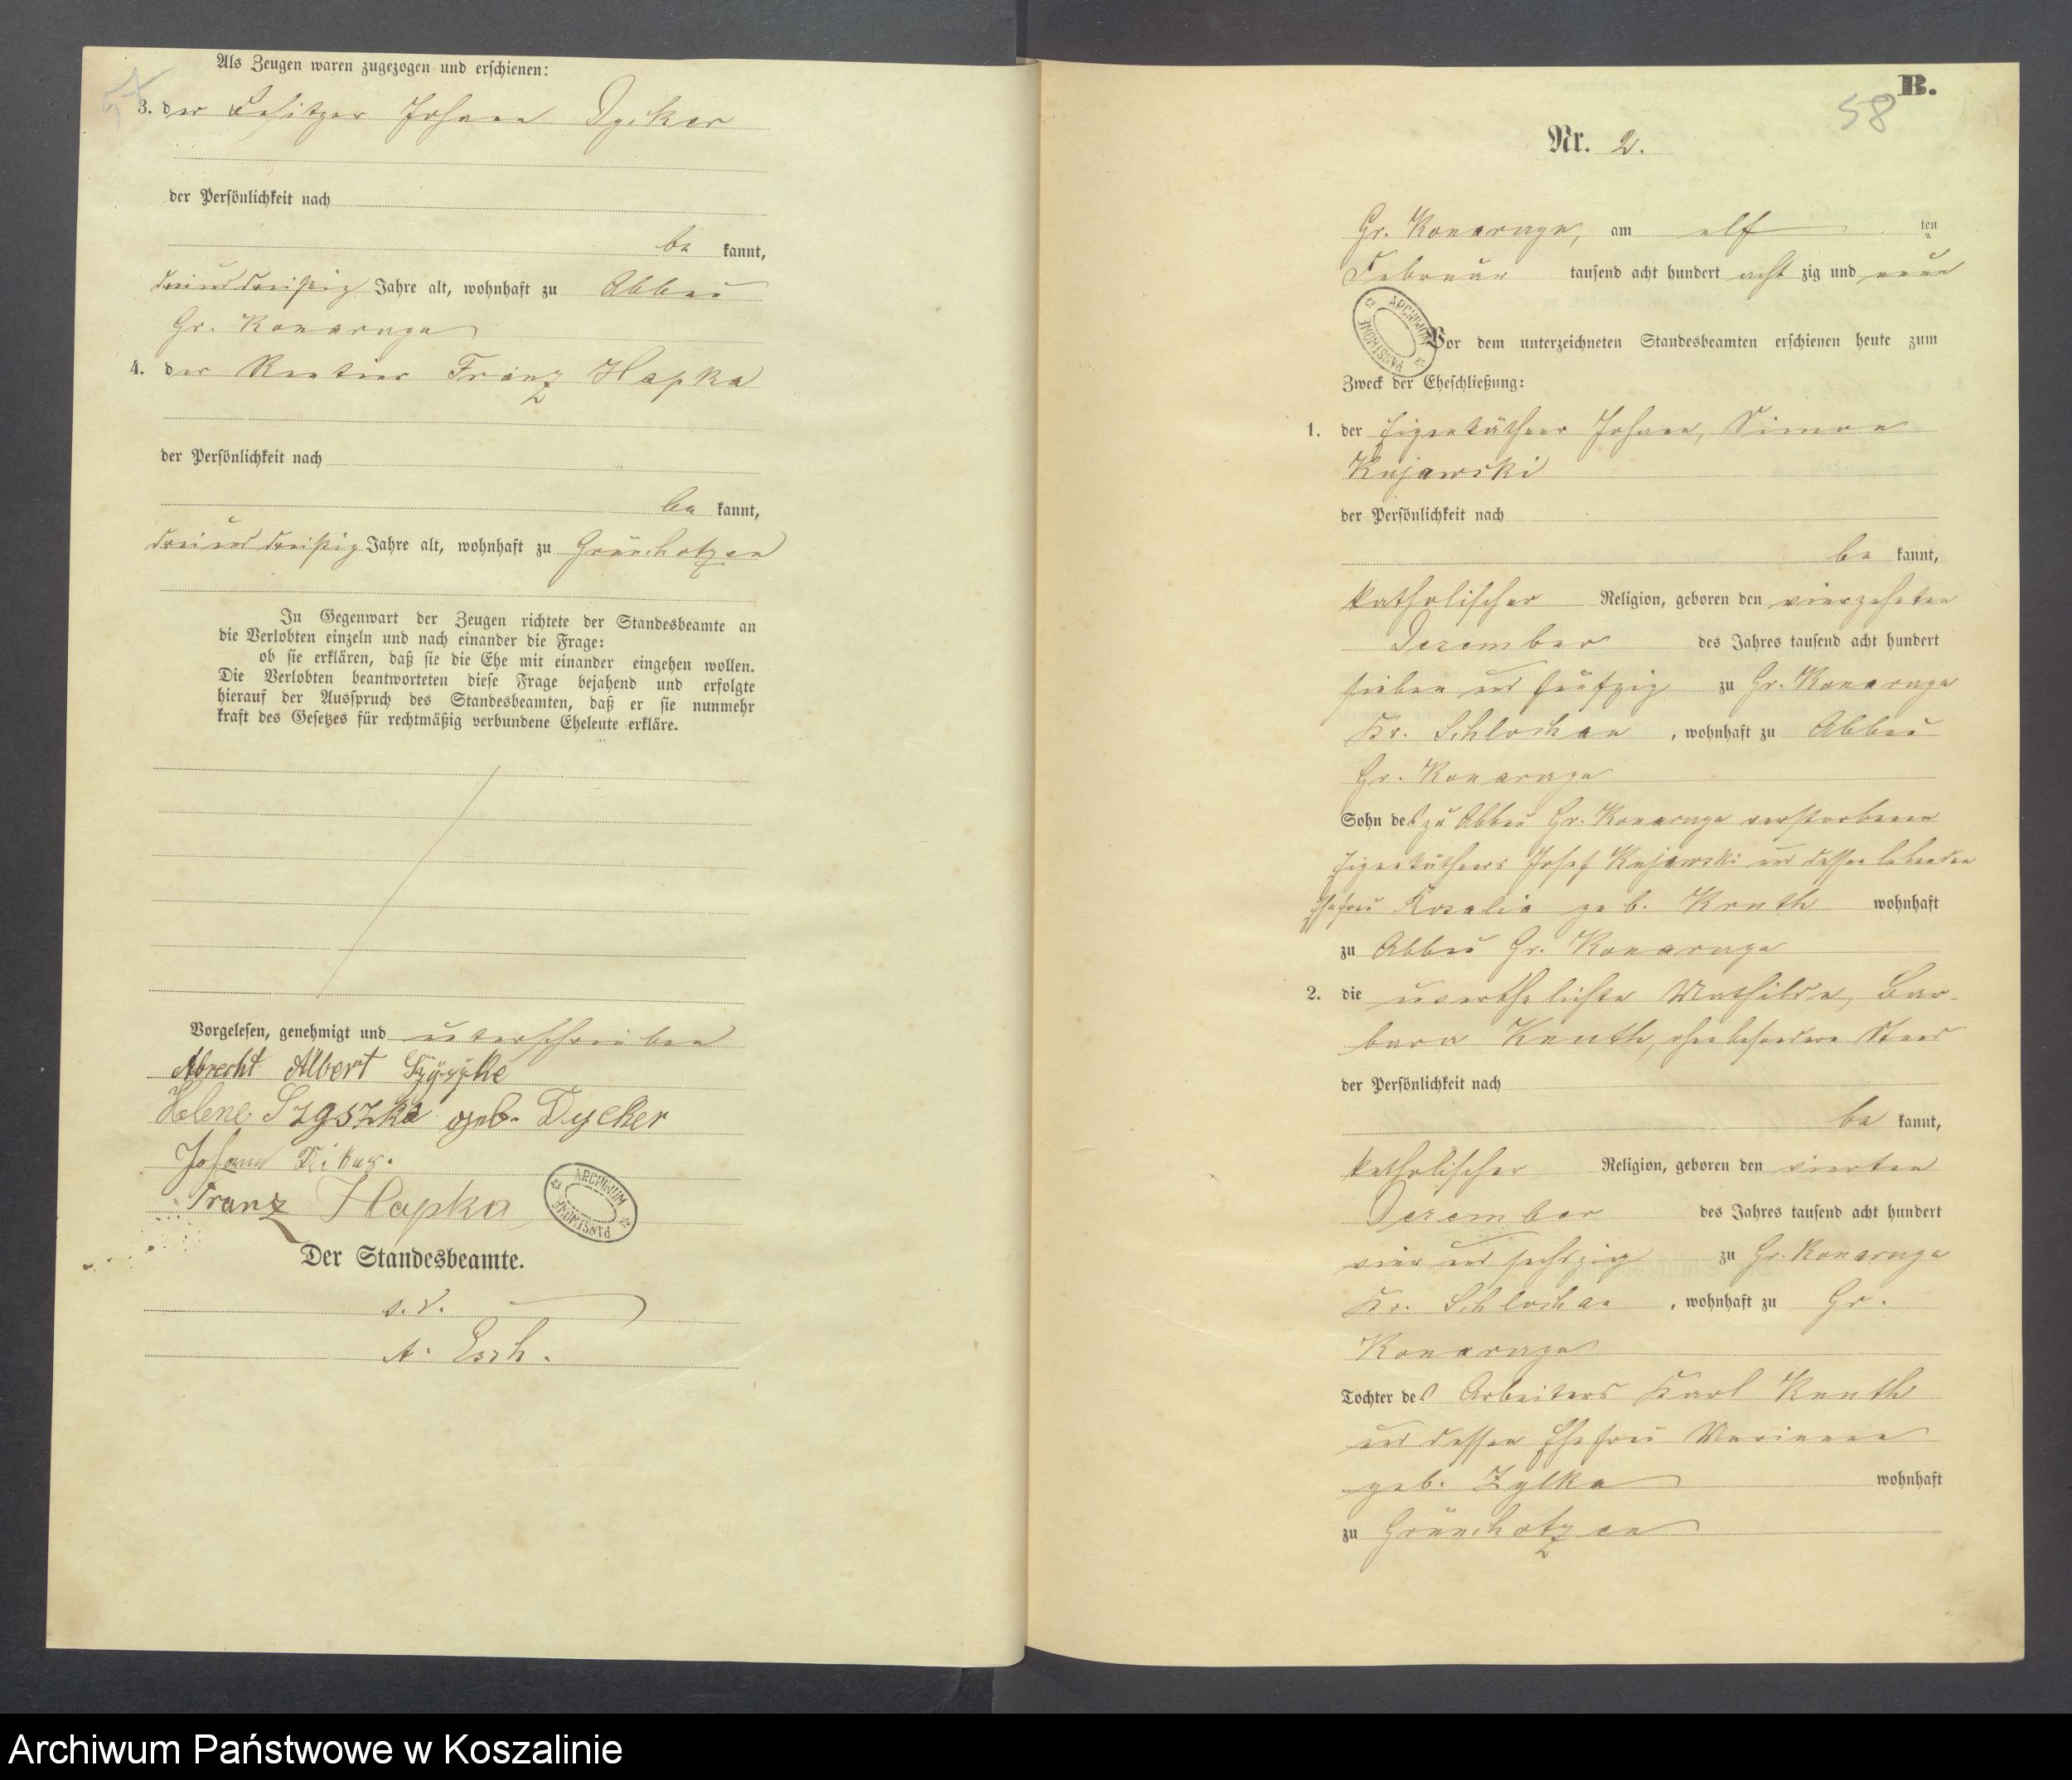 57
Als Zeugen waren zugezogen und erschienen:
3. der Besitzer Johann Dycker
der Persönlichkeit nach
be kannt,
dreiunddreißig Jahre alt, wohnhaft zu Abbau
Gr. Konarczyn
4. der Rentier Franz Hapka
der Persönlichkeit nach
be kannt,
dreiunddreißig Jahre alt, wohnhaft zu Grünchotzen
In Gegenwart der Zeugen richtete der Standesbeamte an
die Verlobten einzeln und nach einander die Frage:
ob sie erklären, daß sie die Ehe mit einander eingehen wollen.
Die Verlobten beantworteten diese Frage bejahend und erfolgte
hierauf der Ausspruch des Standesbeamten, daß er sie nunmehr
kraft des Gesetzes für rechtmäßig verbundene Eheleute erkläre.
Vorgelesen, genehmigt und unterschrieben
Albert
Helene Szyszka geb. Dycker
Johann
Franz Hapka
ARCHIWUM PAŃSTWOWE
Der Standesbeamte.
s. v.
A. Esch.
B.
58
Nr. 2.
Gr. Konarczyn, am elf ten
Februar tausend acht hundert acht zig und neun
ARCHIWUM PAŃSTWOWE
Vor dem unterzeichneten Standesbeamten erschienen heute zum
Zweck der Eheschließung:
1. der Eigenkäthner Johann, Simon
Kujawski
der Persönlichkeit nach
be kannt,
katholischer Religion, geboren den vierzehnten
Dezember des Jahres tausend acht hundert
sieben und fünfzig zu Gr. Konarczyn
Kr. Schlochau, wohnhaft zu Abbau
Gr. Konarczyn
Sohn des zu Abbau Gr. Konarczyn verstorbenen
Eigenkäthners Josef Kujawski und dessen lebenden
Ehefrau Rosalia geb. wohnhaft
zu Abbau Gr. Konarczyn
2. die unverehelichte Mathilde, Bar-
bara Knuth, ohne besonderen Stand
der Persönlichkeit nach
be kannt,
katholischer Religion, geboren den vierten
Dezember des Jahres tausend acht hundert
vier und sechszig zu Gr. Konarczyn
Kr. Schlochau, wohnhaft zu Gr.
Konarczyn
Tochter des Arbeiters Karl Knuth
und dessen Ehefrau Marianna
geb. Zylka wohnhaft
zu Grünchotzen
Archiwum Państwowe w Koszalinie